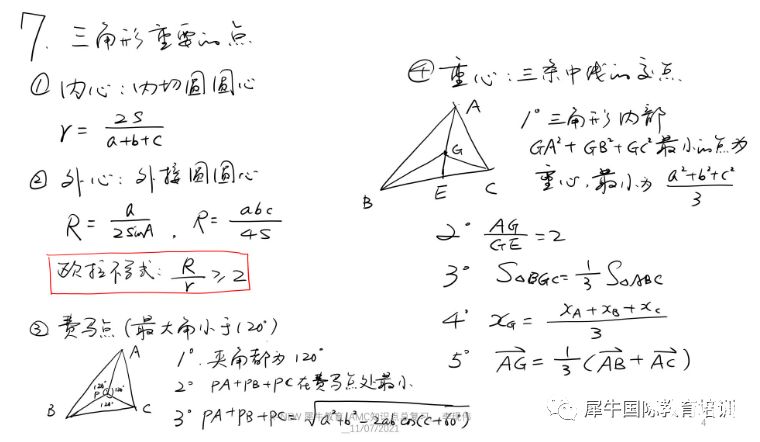 7. 三角形重要的点
① 内心：内切圆圆心
r = 2S / (a+b+c)
② 外心：外接圆圆心
R = a / 2sinA , R = abc / 4S
欧拉不等式: R/r ≥ 2
③ 费马点 (最大角小于120°)
A
B
C
P
120°
120°
120°
1° 夹角都为120°
2° PA+PB+PC在费马点处最小
3° PA+PB+PC = √(a²+b²-2ab cos(C+60°))
④ 重心：三条中线的交点
A
B
C
G
E
1° 三角形内部
GA²+GB²+GC²最小的点为
重心,最小为 (a²+b²+c²) / 3
2° AG / GE = 2
3° S△BGC = 1/3 S△ABC
4° x_G = (x_A + x_B + x_C) / 3
5° AG→ = 1/3 (AB→ + AC→)
犀牛教育
AMC知识点总复习
11/07/2021
4
犀牛国际教育培训